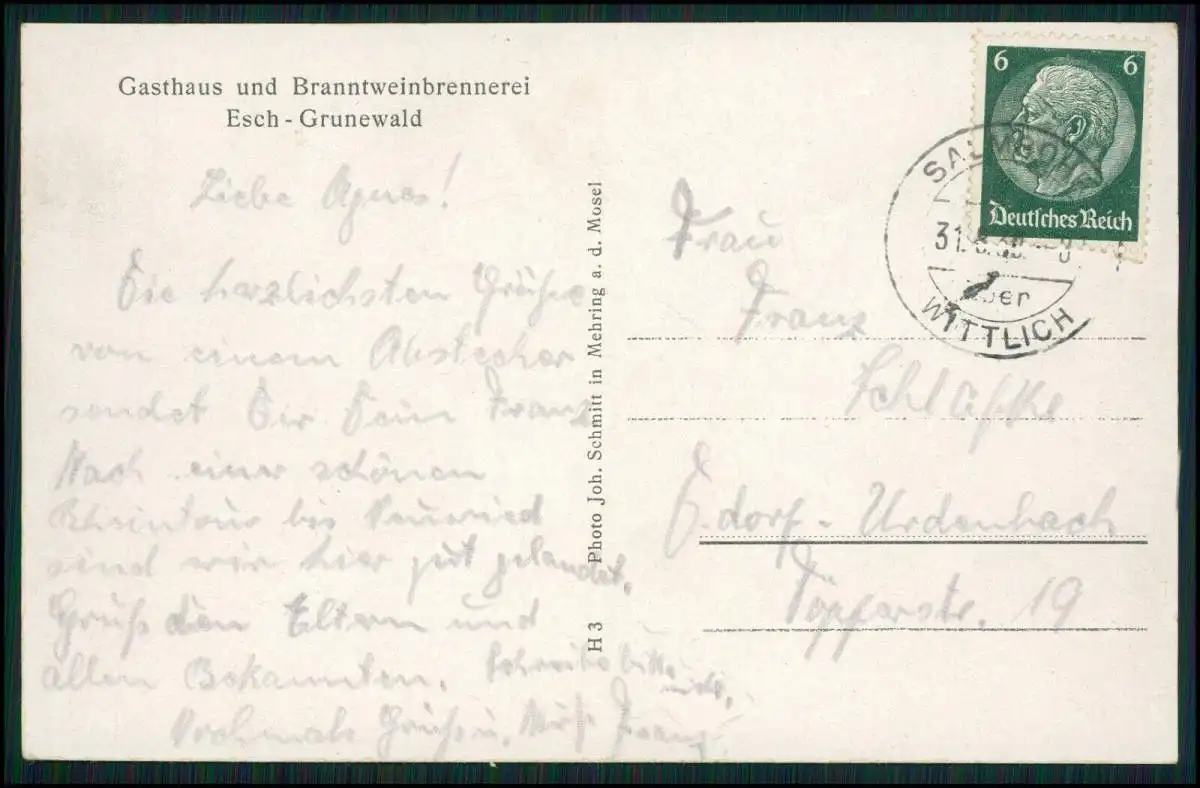 Gasthaus und Branntweinbrennerei
Esch - Grunewald
Liebe Agnes!
Die herzlichsten Grüße
von einem Abstecher
sendet Dir Dein Franz
Nach einer schönen
Rheintour bis Neuwied
sind wir hier gut gelandet.
Grüß den Eltern und
allen Bekannten. Schreibe bitte
nicht.
Nochmals Grüße u. Küsse Franz
H 3 Photo Joh. Schmitt in Mehring a. d. Mosel
6 6
Deutsches Reich
SALMROHR
31.
über
WITTLICH
Frau
Franz
D.dorf - Urdenbach
Töpferstr. 19